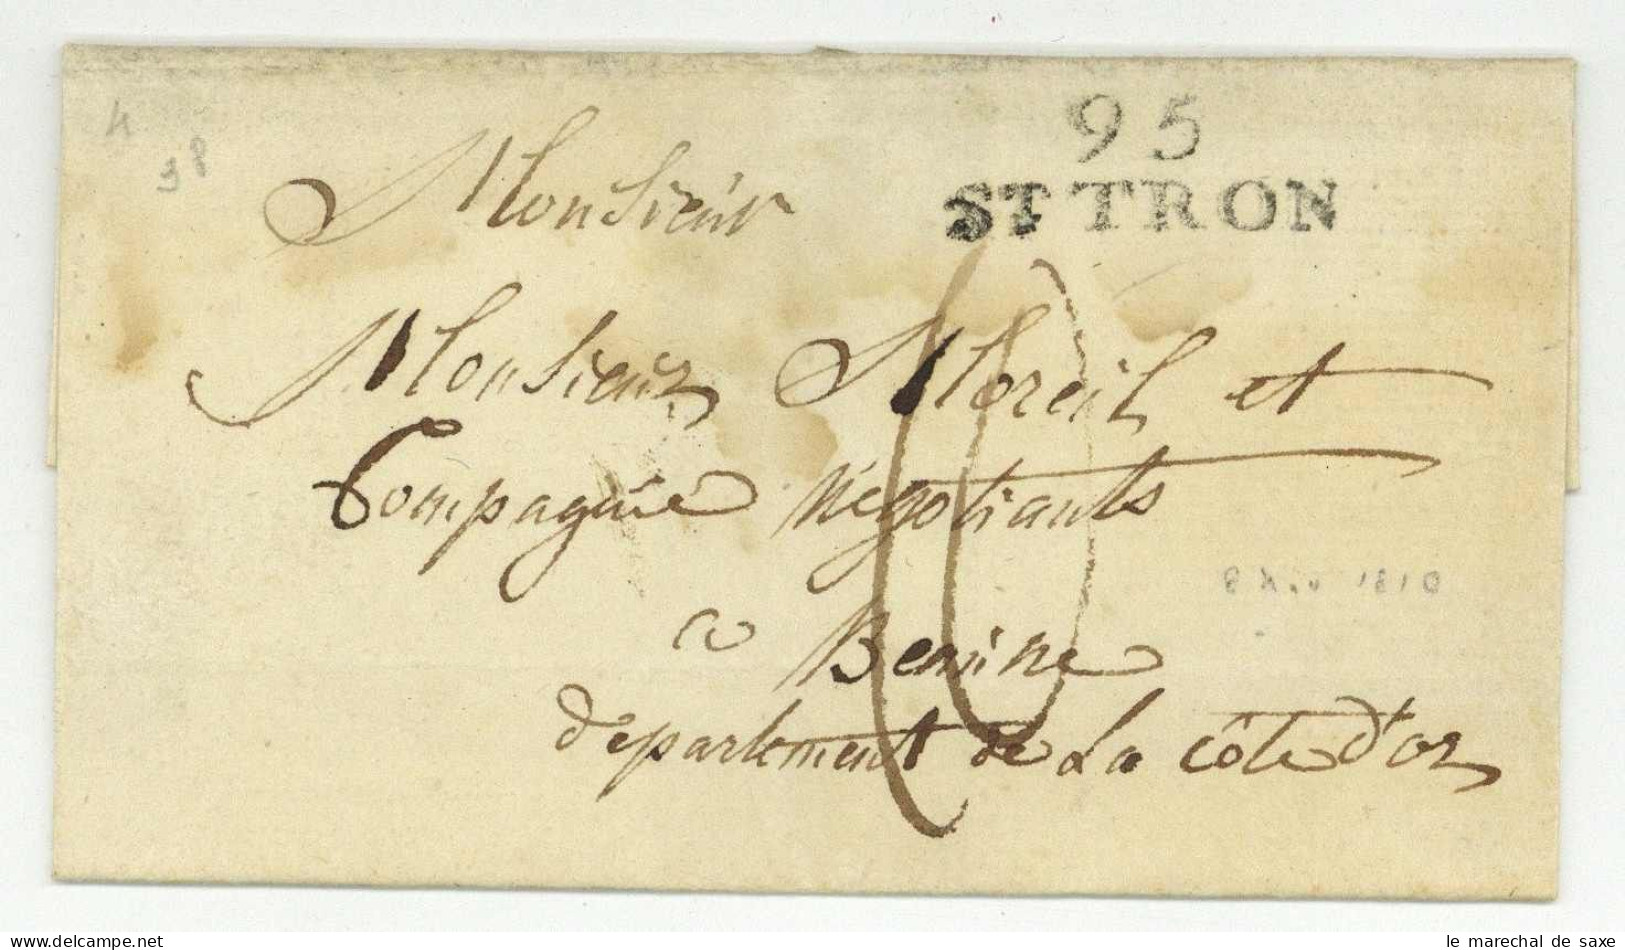 95
ST TRON
Monsieur
Monsieur Moreil et
Compagnie Négotiants
a Beaune
département de La Côte d'or
10
1810
www.delcampe.net
le marechal de saxe